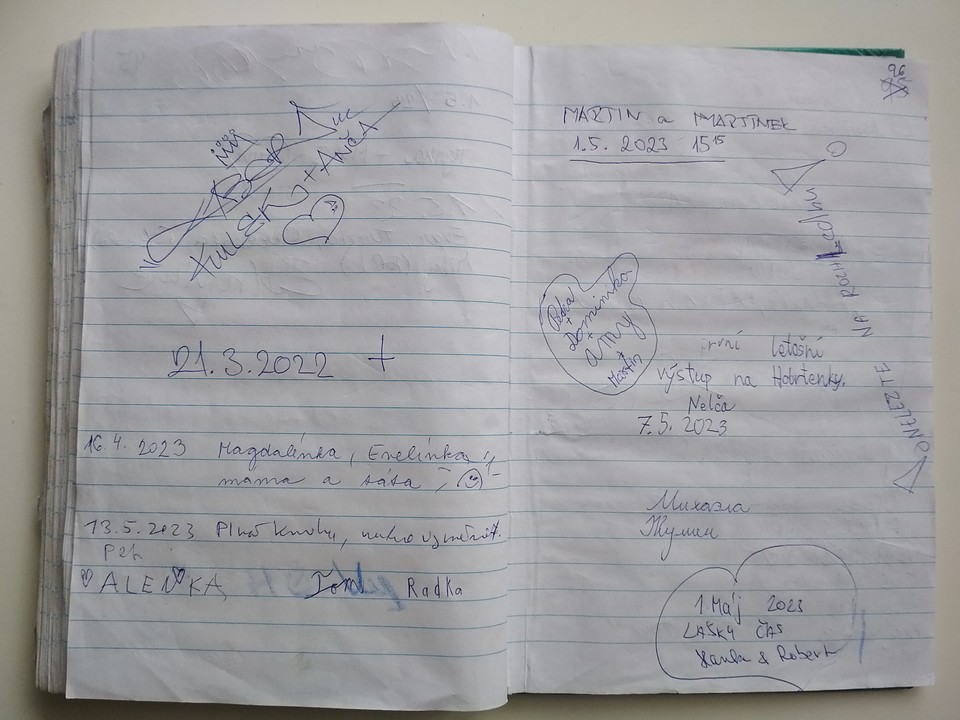 +ANČA
21.3.2022 +
16.4. 2023 Magdalínka, Evelínka
máma a táta
13.5.2023 Plná knihy, nutno vyměnit.
Petr
ALENKA Tom Radka
96
MARTIN a MARTÍNEK
1.5. 2023 15¹⁵
NELEZTE NA ROZHLEDNU
+
Dominika
+
amy
+
Martin
První letošní
výstup na Hobrtenky.
Nelča
7.5. 2023
Михаэла
1. Máj 2023
LÁSKY ČAS
Hanka & Robert